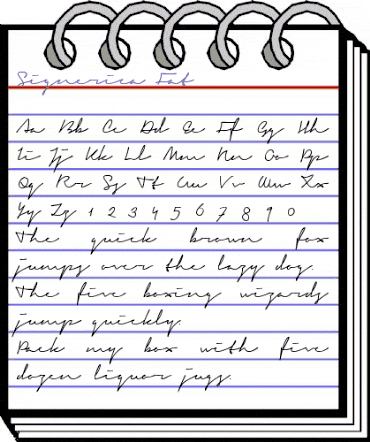 Signerica Fat
Aa Bb Cc Dd Ee Ff Gg Hh
Ii Jj Kk Ll Mm Nn Oo Pp
Qq Rr Ss Tt Uu Vv Ww Xx
Yy Zz 1 2 3 4 5 6 7 8 9 0
The quick brown fox
jumps over the lazy dog.
The five boxing wizards
jump quickly.
Pack my box with five
dozen liquor jugs.